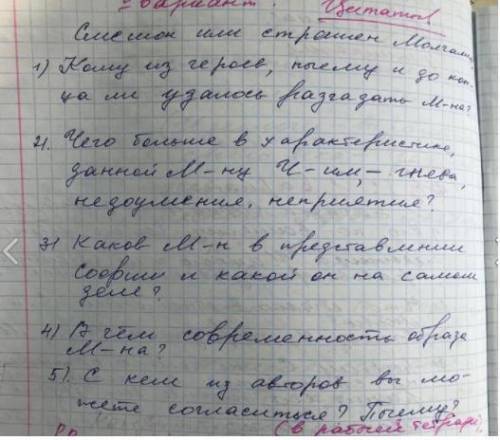 вариант. Цитатой
Смешон или страшен Молчалин
1) Кому из героев, почему и до кон-
ца ли удалось разгадать М-на?
2). Чего больше в характеристике,
данной М-ну Ч-им, – гнева,
недоумения, неприятия?
3) Каков М-н в представлении
Софьи и какой он на самом
деле?
4) В чём современность образа
М-на?
5). С кем из авторов вы мо-
жете согласиться? Почему?
(в рабочей тетради)